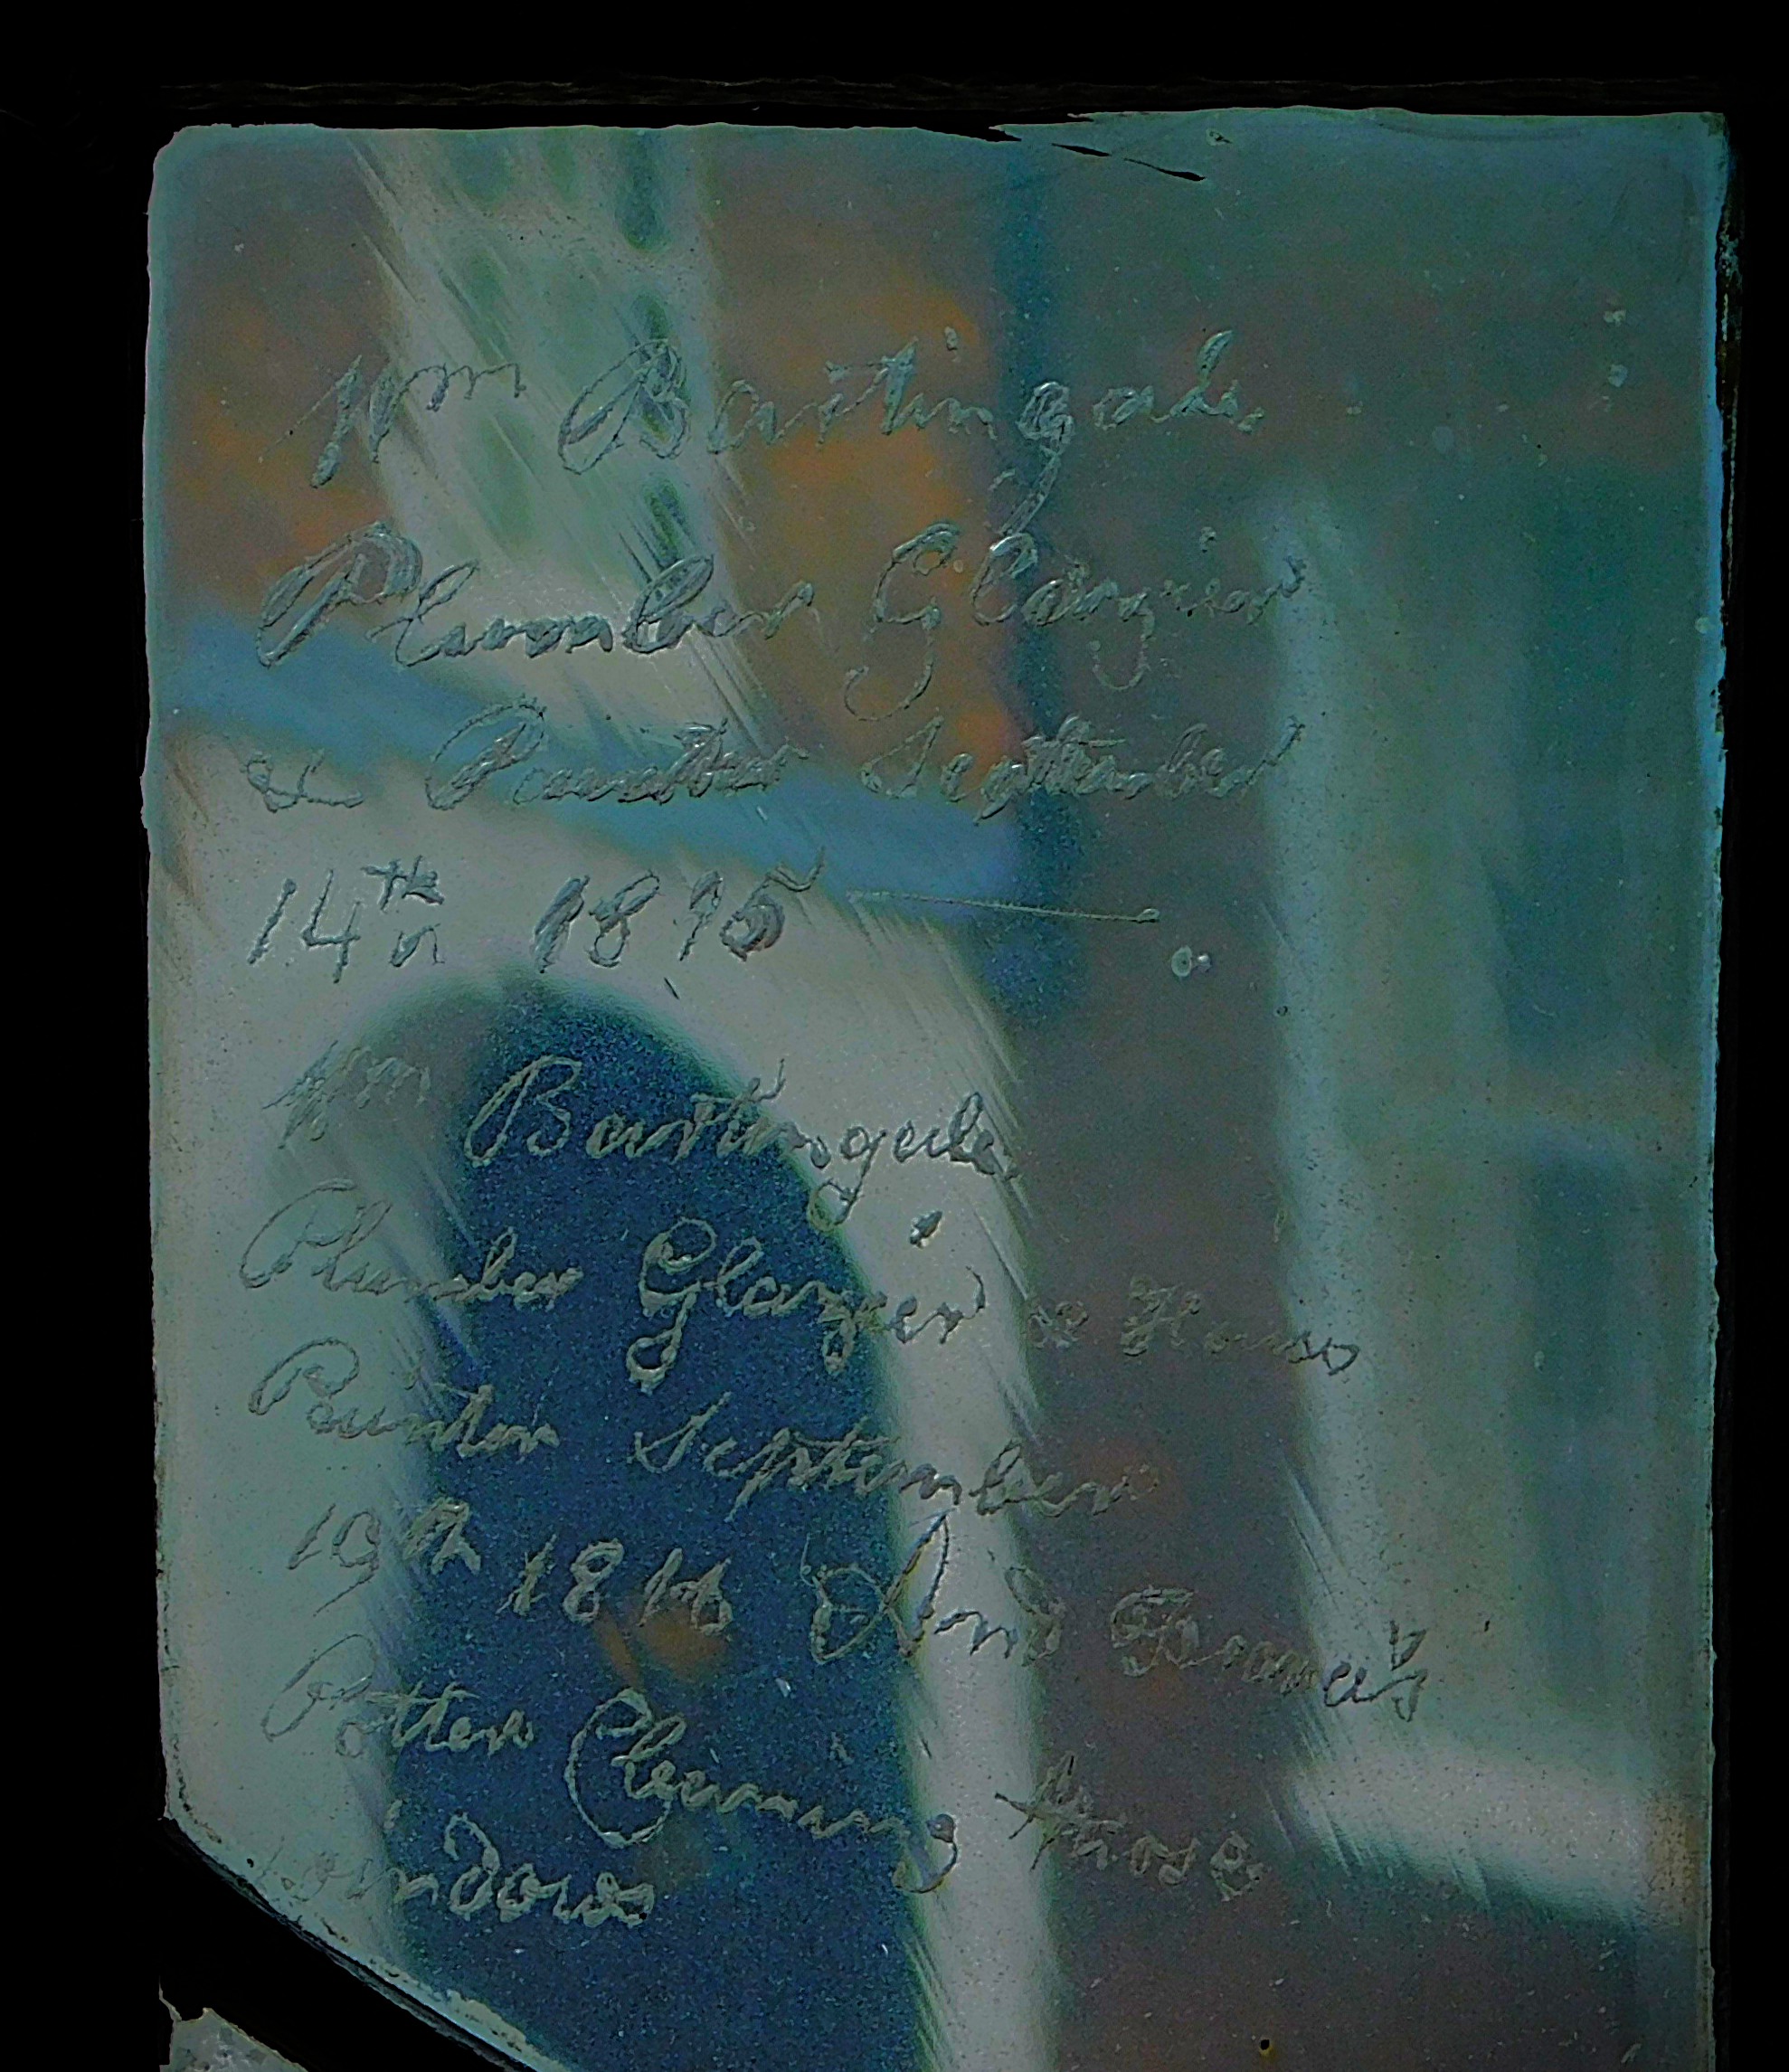 Wm Bastingale
Plumber Glazier
& Painter September
14th 1815
Wm Bastingale
Plumber Glazier & House
Painter September
19th 1816 And Thomas
Potter Cleaning those
windows